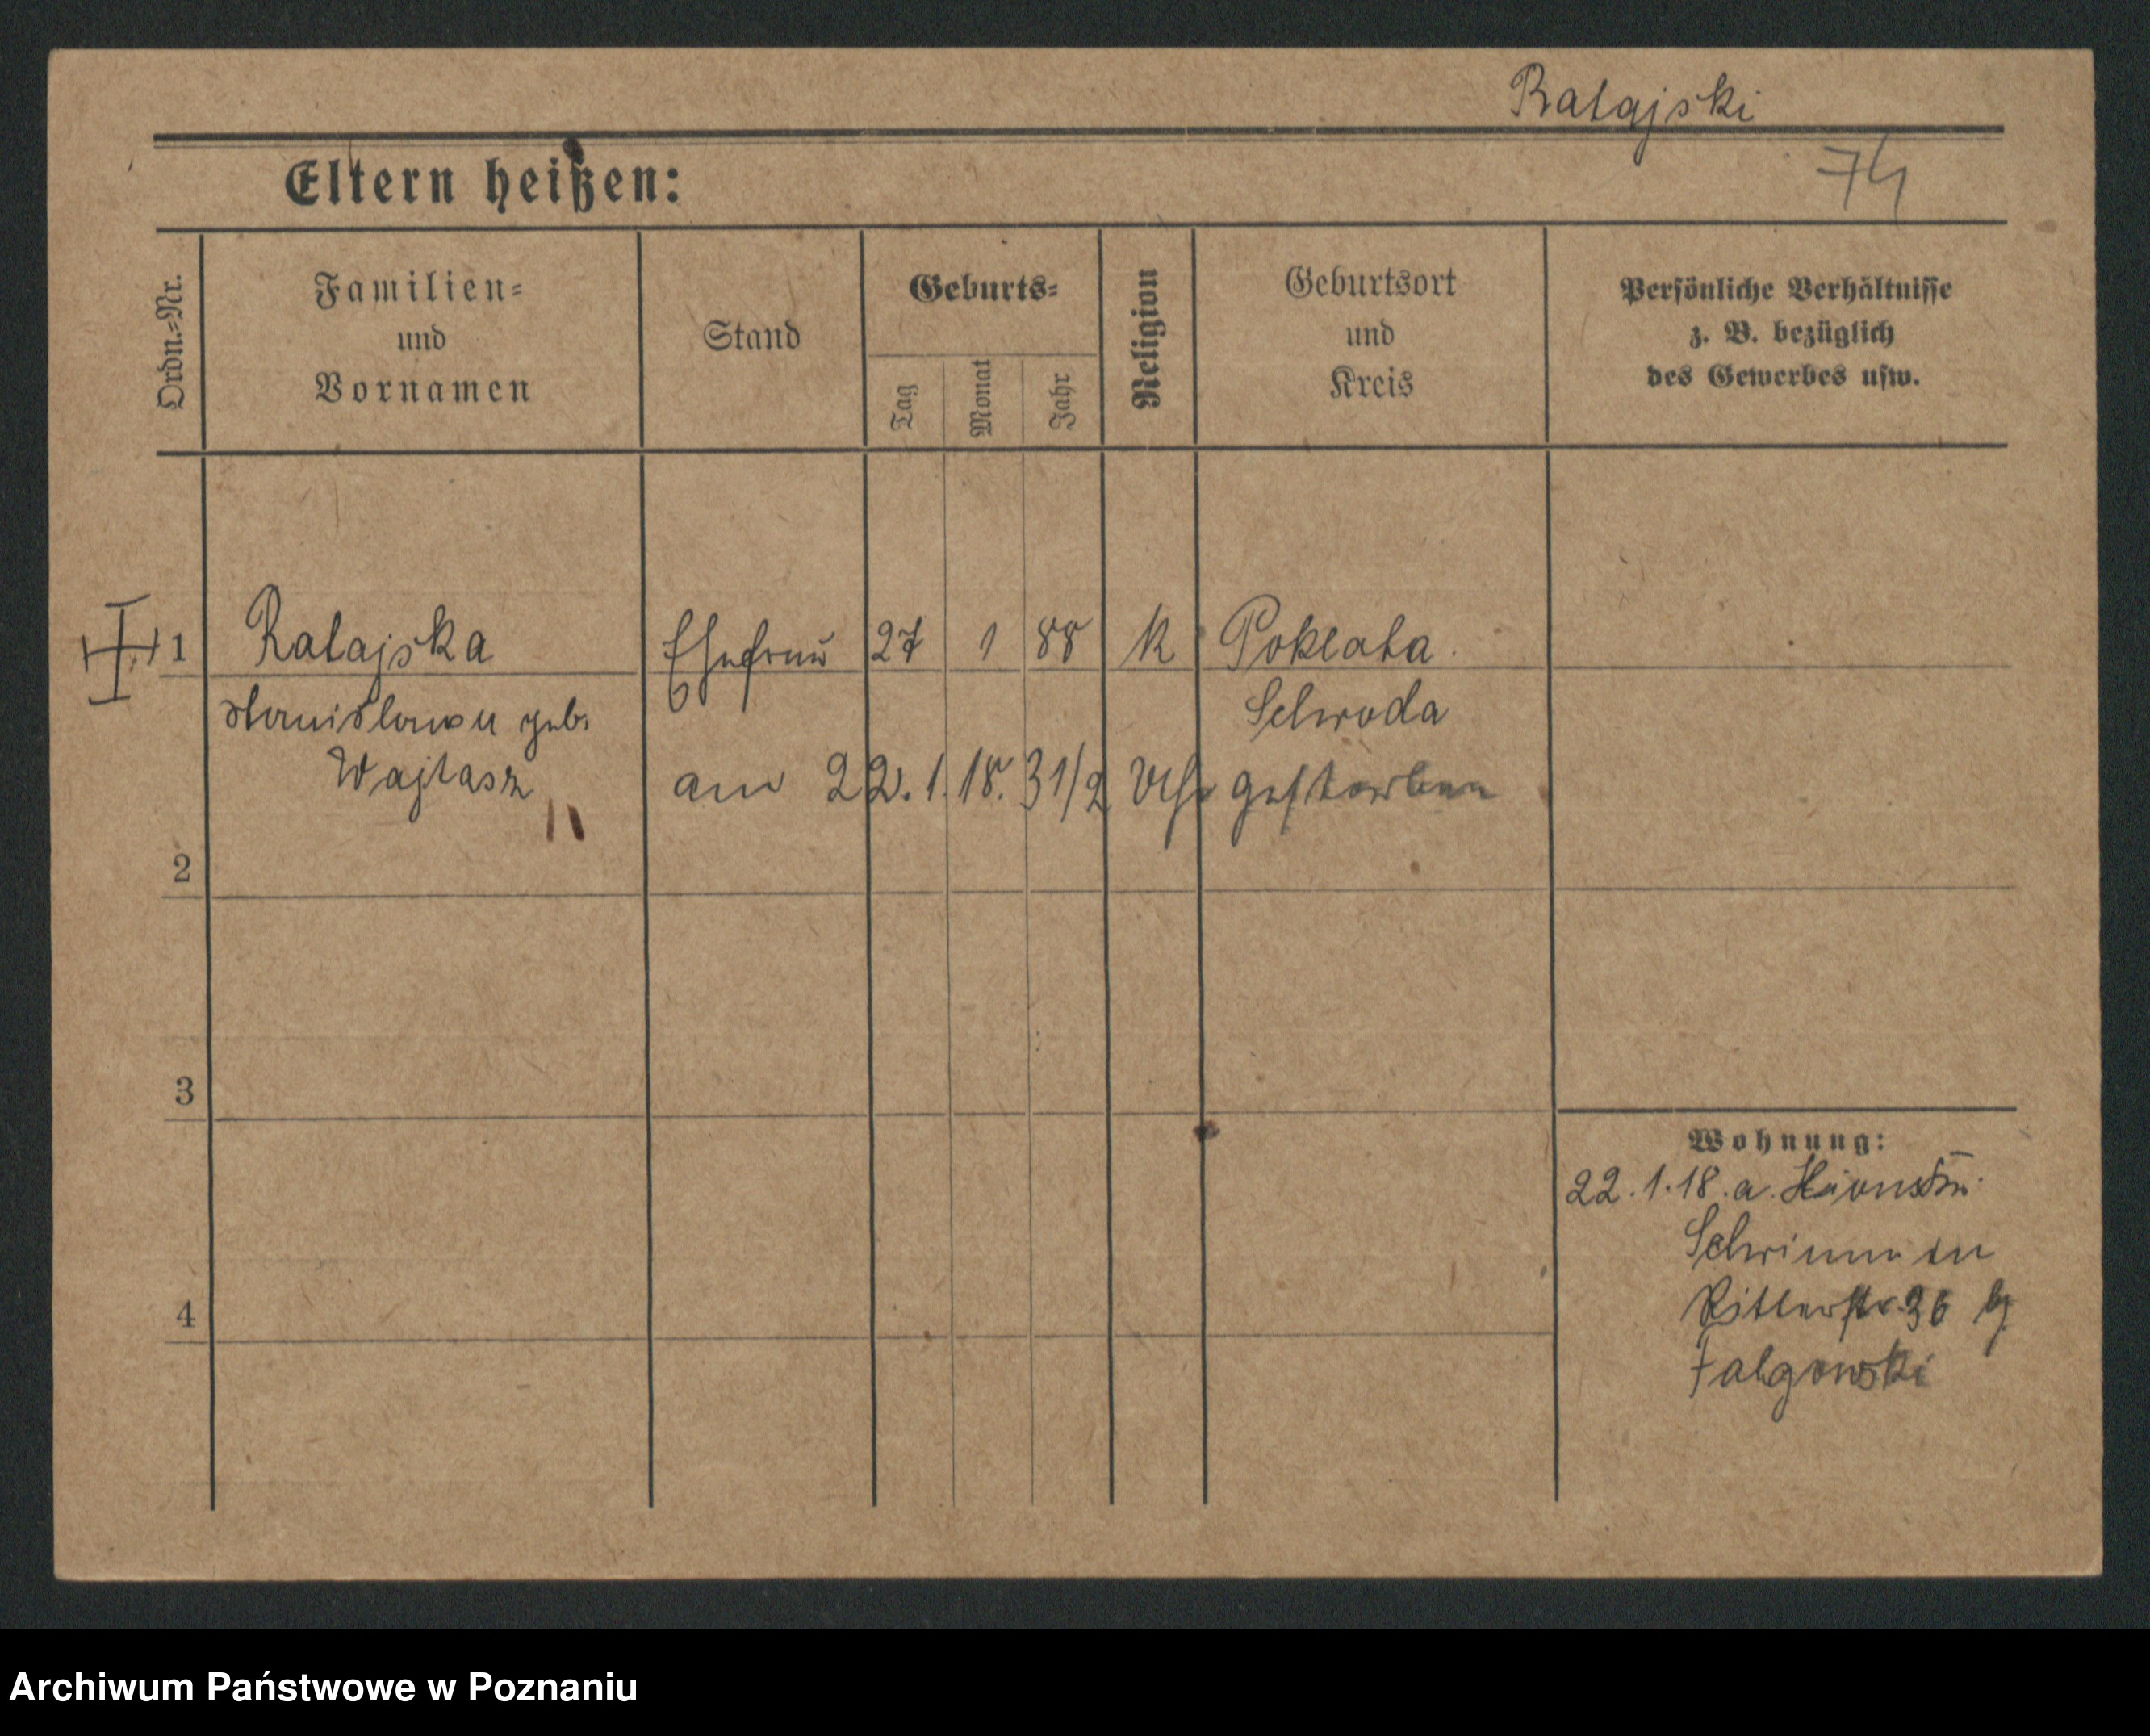 Ratajski
74
Eltern heißen:
Ordn.-Nr.
Familien-
und
Vornamen
Stand
Geburts-
Tag
Monat
Jahr
Religion
Geburtsort
und
Kreis
Persönliche Verhältnisse
z. B. bezüglich
des Gewerbes usw.
1 Ratajska Ehefrau 27 1 88 K Poklata
Stanislawa geb. Schroda
Wajtasz am 22.1.18. 3 1/2 Uhr gestorben
2
3
Wohnung:
22.1.18. a.
Ritterstr. 36 b/
4
Falgowski
Archiwum Państwowe w Poznaniu